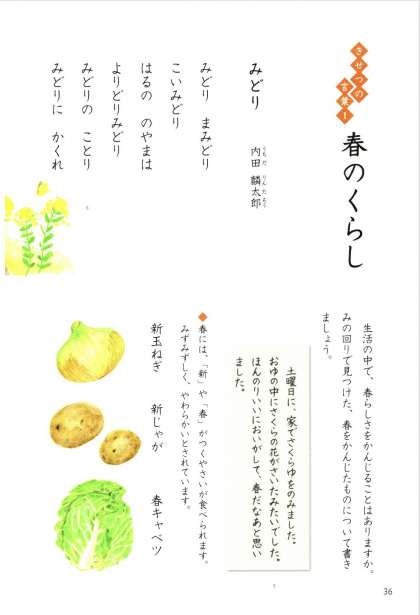 きせつの
言葉1
春のくらし
みどり
内田 麟太郎
うちだ りんたろう
みどり まみどり
こいみどり
はるの のやまは
よりどりみどり
みどりの ことり
みどりに かくれ
生活の中で、春らしさをかんじることはありますか。
みの回りで見つけた、春をかんじたものについて書き
ましょう。
土曜日に、家でさくらゆをのみました。
おゆの中にさくらの花がさいたみたいでした。
ほんのりいいにおいがして、春だなあと思い
ました。
◆春には、「新」や「春」がつくやさいが食べられます。
みずみずしく、やわらかいとされています。
新玉ねぎ
新じゃが
春キャベツ
36